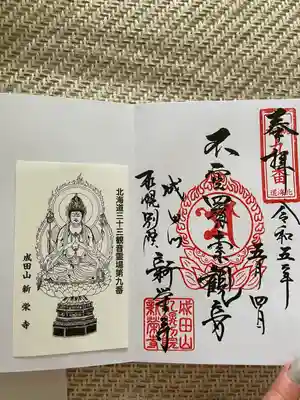 奉拝
令和五年
五月四日
不空羂索観音
成田山
札幌別院 新栄寺
成田山
札幌別院
新榮寺
北海道三十三観音霊場第九番
成田山 新栄寺